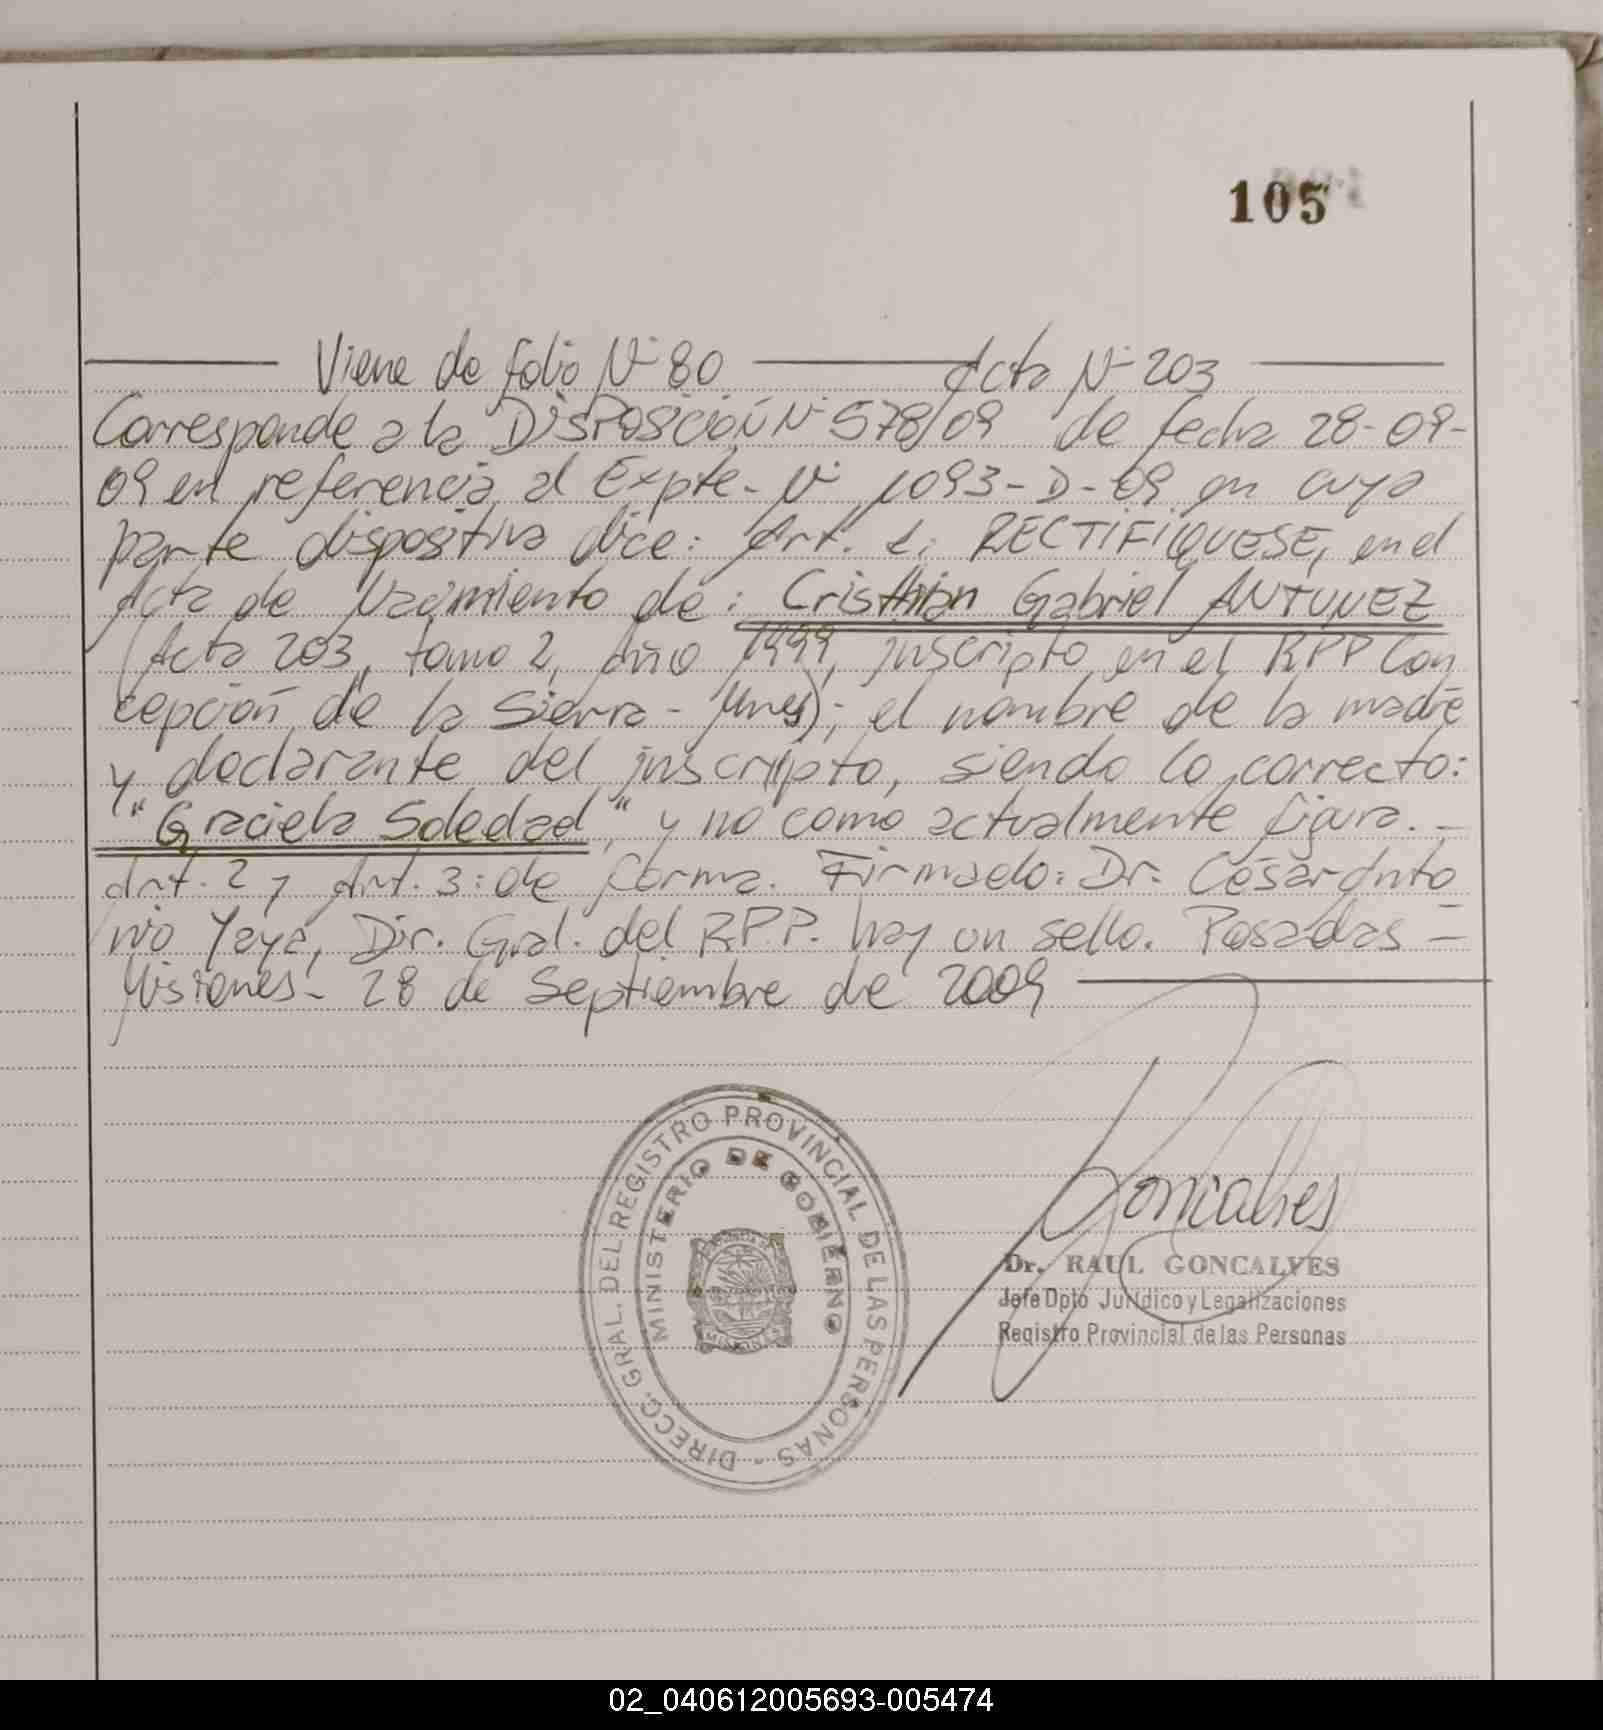 105
Viene de folio Nº 80 Acta Nº 203
Corresponde a la DISPOSICIÓN Nº 578/09 de fecha 28-09-
09 en referencia al Expte. Nº 1093-D-09 en cuya
parte dispositiva dice: Art. 1: RECTIFÍQUESE, en el
Acta de Nacimiento de: Cristhian Gabriel ANTUNEZ
(Acta 203, tomo 2, Año 1999, inscripto en el RPP Con
cepción de la Sierra - Mnes); el nombre de la madre
y declarante del inscripto, siendo lo correcto:
"Graciela Soledad" y no como actualmente figura.-
Art. 2 y Art. 3: de forma. Firmado: Dr. César Anto
nio Yaya, Dir. Gral. del R.P.P. hay un sello. Posadas -
Misiones - 28 de Septiembre de 2009
DIRECC. GRAL. DEL REGISTRO PROVINCIAL DE LAS PERSONAS -
MINISTERIO DE GOBIERNO
MISIONES
Goncalves
Dr. RAUL GONCALVES
Jefe Dpto Jurídico y Legalizaciones
Registro Provincial de las Personas
02_040612005693-005474